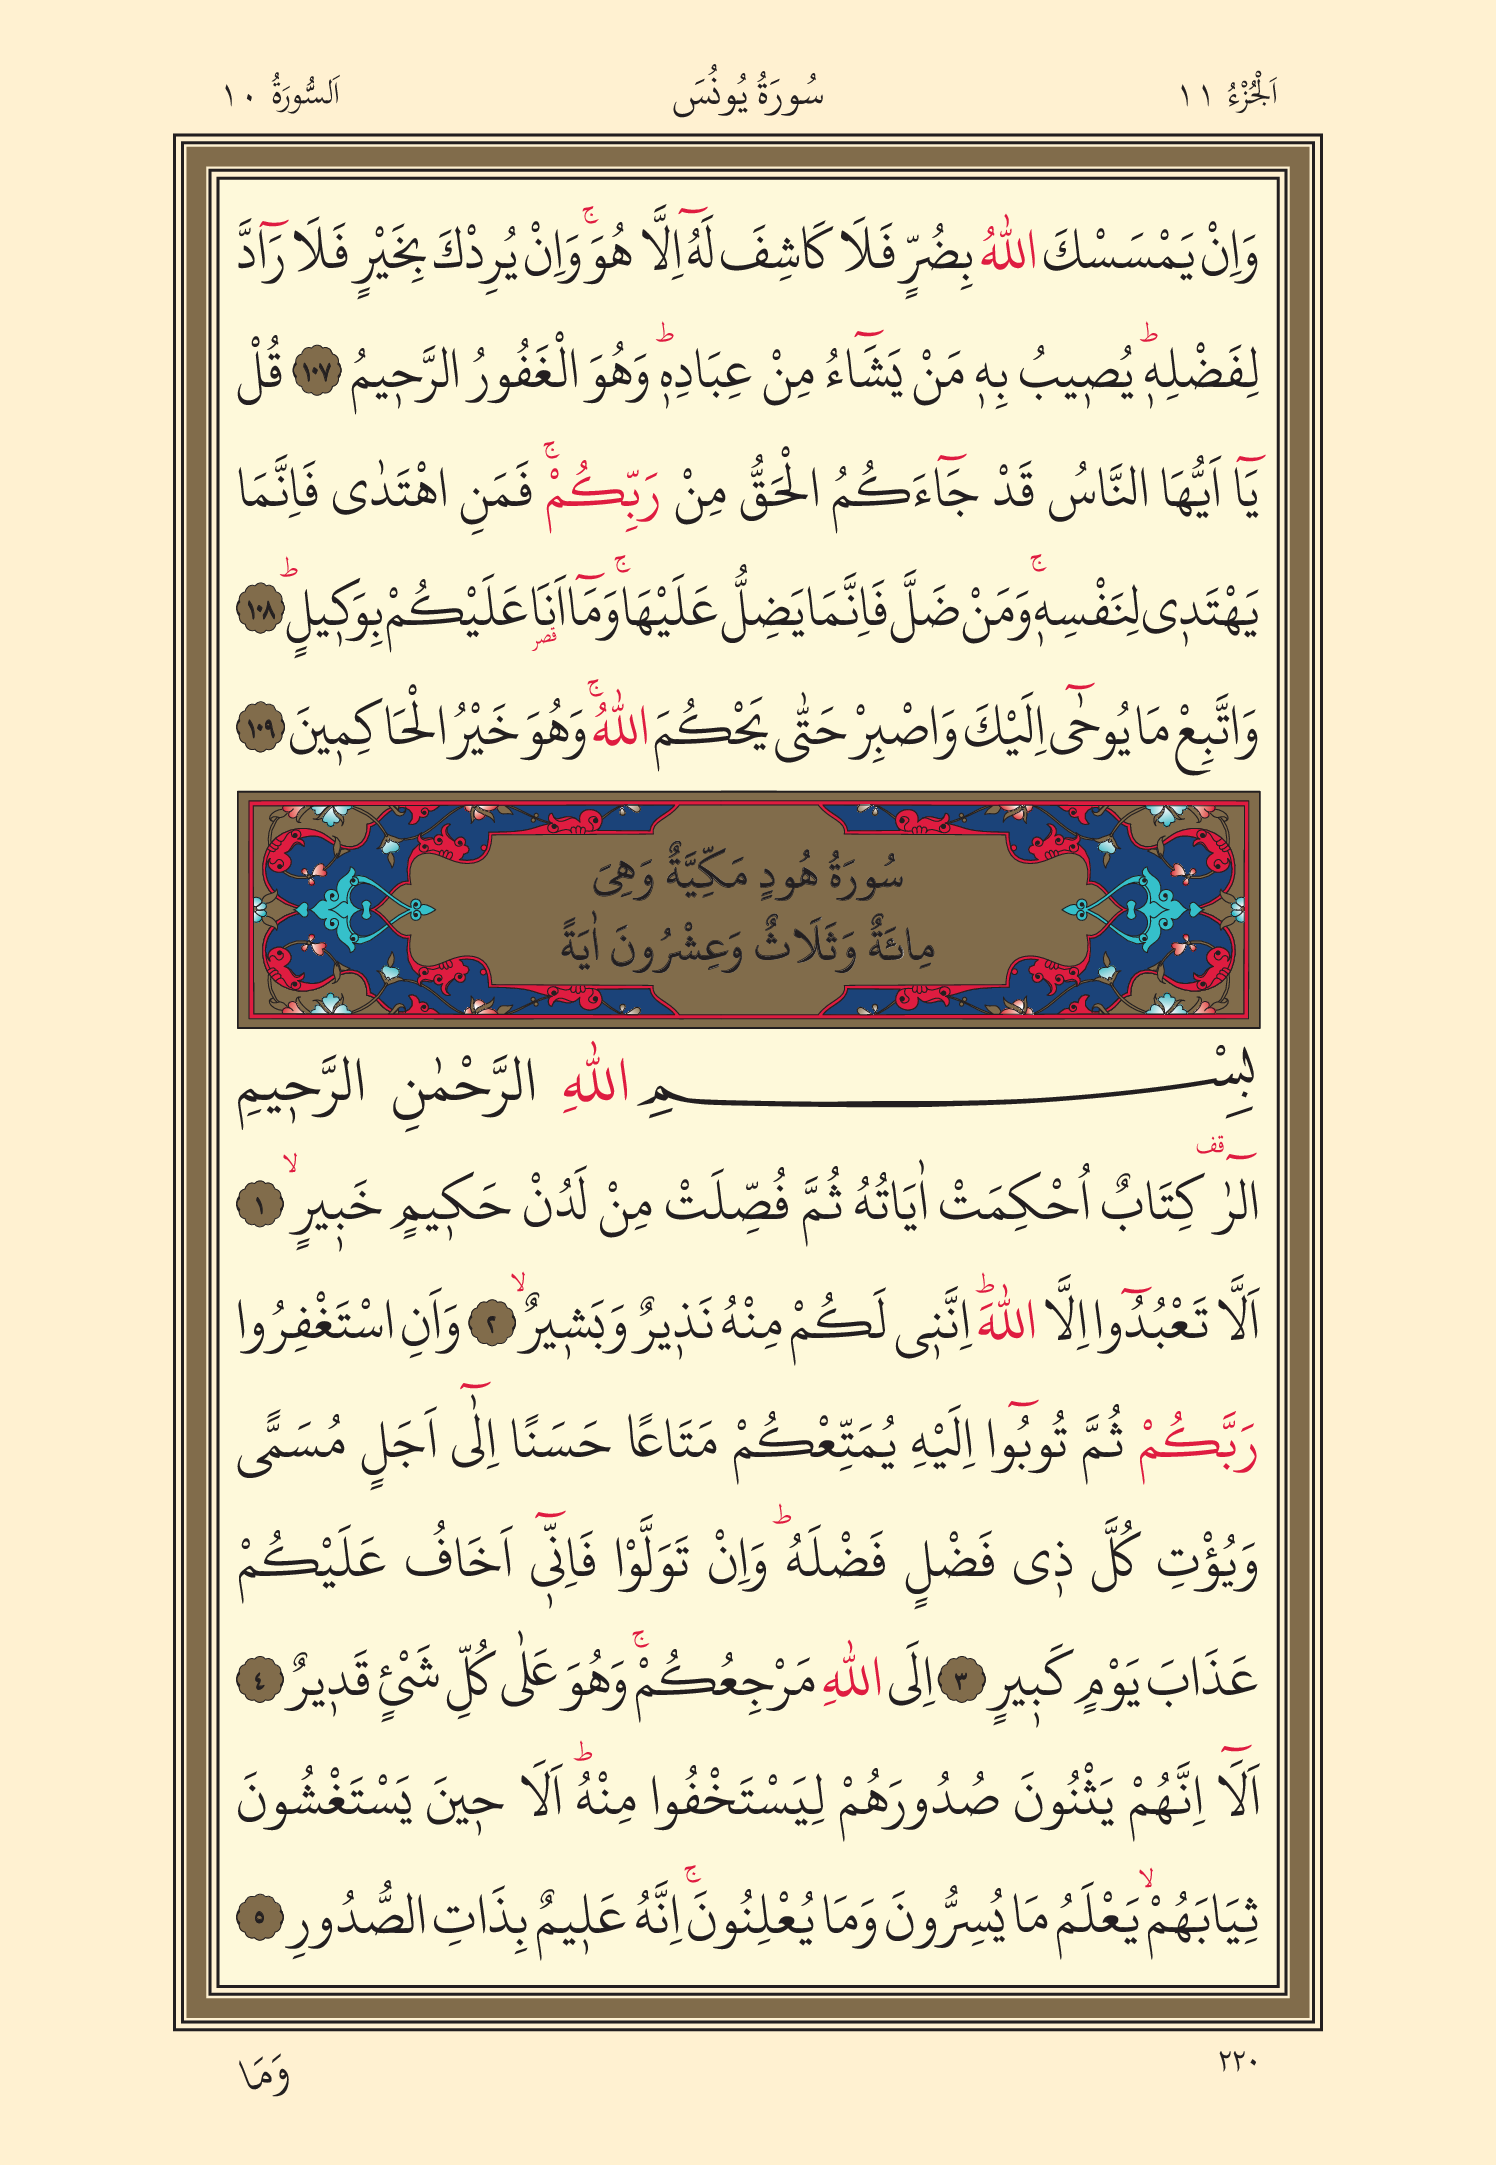 اَلْجُزْءُ ١١
سُورَةُ يُونُسَ
اَلسُّورَةُ ١٠
وَاِنْ يَمْسَسْكَ اللّٰهُ بِضُرٍّ فَلَا كَاشِفَ لَهُٓ اِلَّا هُوَۚ وَاِنْ يُرِدْكَ بِخَيْرٍ فَلَا رَٓادَّ
لِفَضْلِه۪ۜ يُص۪يبُ بِه۪ مَنْ يَشَٓاءُ مِنْ عِبَادِه۪ۜ وَهُوَ الْغَفُورُ الرَّح۪يمُ ١٠٧ قُلْ
يَٓا اَيُّهَا النَّاسُ قَدْ جَٓاءَكُمُ الْحَقُّ مِنْ رَبِّكُمْۚ فَمَنِ اهْتَدٰى فَاِنَّمَا
يَهْتَد۪ى لِنَفْسِه۪ۚ وَمَنْ ضَلَّ فَاِنَّمَا يَضِلُّ عَلَيْهَاۚ وَمَٓا اَنَا۬ عَلَيْكُمْ بِوَك۪يلٍۜ ١٠٨
قصر
وَاتَّبِعْ مَا يُوحٰٓى اِلَيْكَ وَاصْبِرْ حَتّٰى يَحْكُمَ اللّٰهُۚ وَهُوَ خَيْرُ الْحَاكِم۪ينَ ١٠٩
سُورَةُ هُودٍ مَكِّيَّةٌ وَهِىَ
مِائَةٌ وَثَلَاثٌ وَعِشْرُونَ اٰيَةً
بِسْمِ اللّٰهِ الرَّحْمٰنِ الرَّح۪يمِ
الٓرٰ قف كِتَابٌ اُحْكِمَتْ اٰيَاتُهُ ثُمَّ فُصِّلَتْ مِنْ لَدُنْ حَك۪يمٍ خَب۪يرٍۙ ١
اَلَّا تَعْبُدُٓوا اِلَّا اللّٰهَۜ اِنَّن۪ى لَكُمْ مِنْهُ نَذ۪يرٌ وَبَش۪يرٌۙ ٢ وَاَنِ اسْتَغْفِرُوا
رَبَّكُمْ ثُمَّ تُوبُٓوا اِلَيْهِ يُمَتِّعْكُمْ مَتَاعًا حَسَنًا اِلٰٓى اَجَلٍ مُسَمًّى
وَيُؤْتِ كُلَّ ذ۪ى فَضْلٍ فَضْلَهُۜ وَاِنْ تَوَلَّوْا فَاِنّ۪ٓى اَخَافُ عَلَيْكُمْ
عَذَابَ يَوْمٍ كَب۪يرٍ ٣ اِلَى اللّٰهِ مَرْجِعُكُمْۚ وَهُوَ عَلٰى كُلِّ شَىْءٍ قَد۪يرٌ ٤
اَلَٓا اِنَّهُمْ يَثْنُونَ صُدُورَهُمْ لِيَسْتَخْفُوا مِنْهُۜ اَلَا ح۪ينَ يَسْتَغْشُونَ
ثِيَابَهُمْۙ يَعْلَمُ مَا يُسِرُّونَ وَمَا يُعْلِنُونَۚ اِنَّهُ عَل۪يمٌ بِذَاتِ الصُّدُورِ ٥
٢٢٠
وَمَا